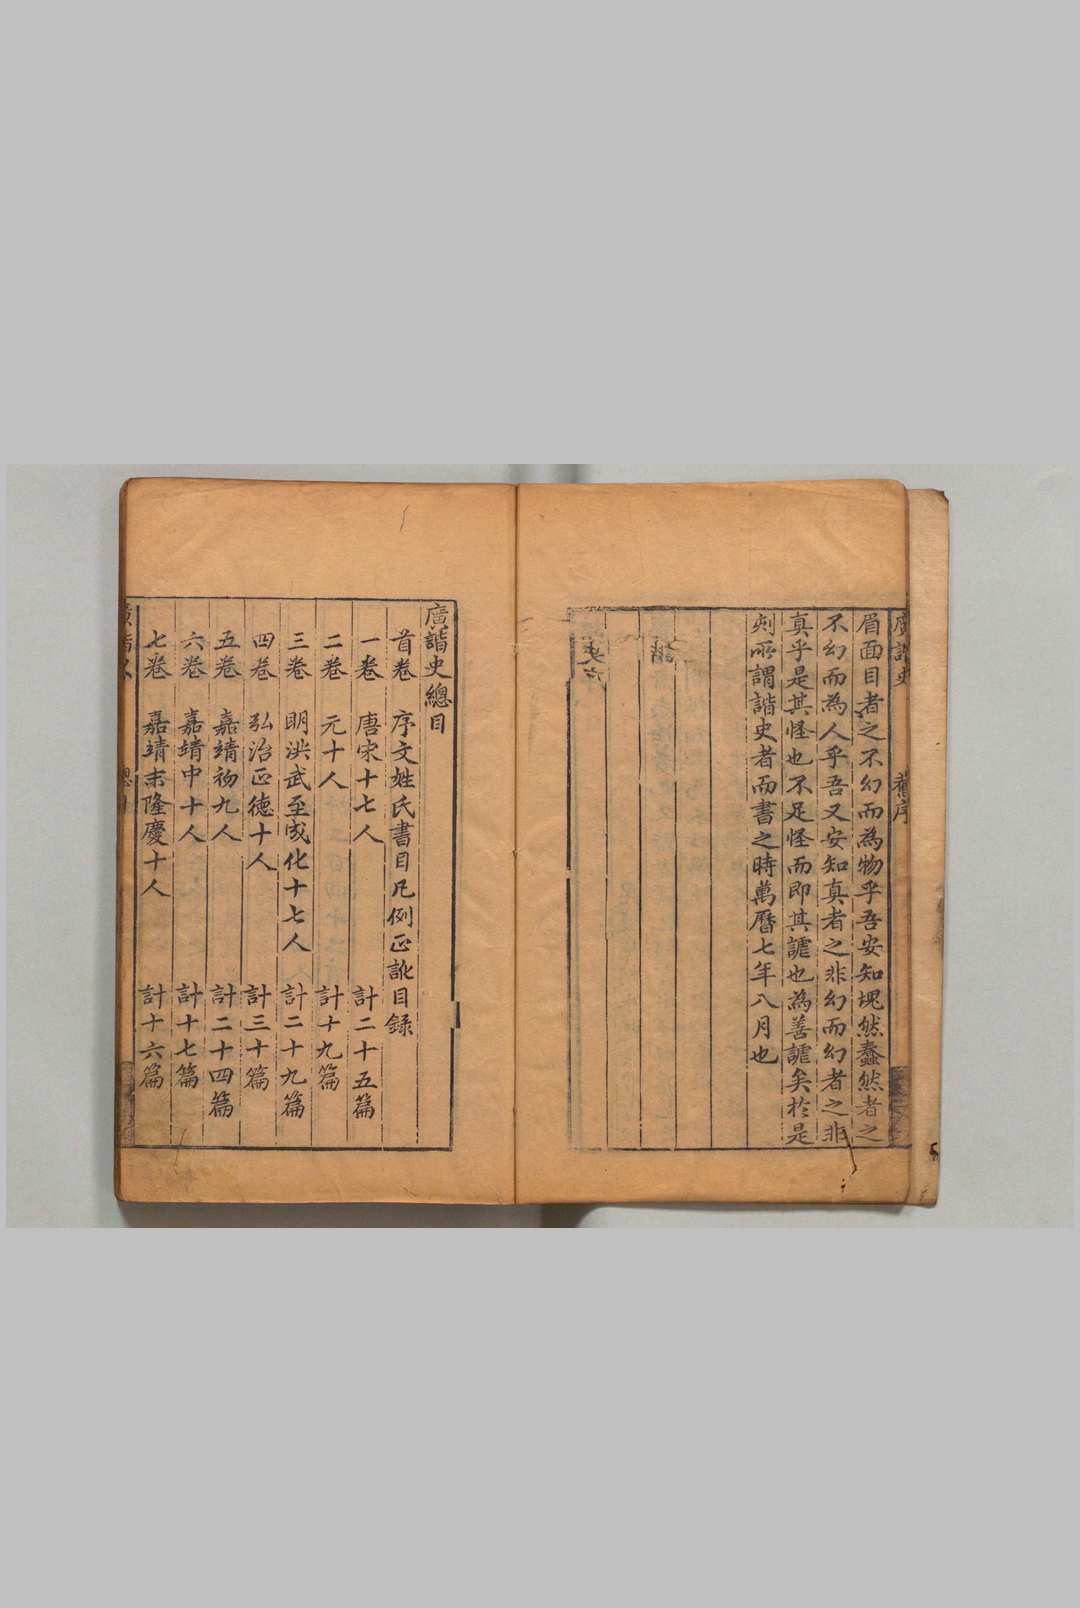 廣諧史
舊序
眉面目者之不幻而為物乎吾安知塊然蠢然者之
不幻而為人乎吾又安知真者之非幻而幻者之非
真乎是其怪也不足怪而即其謔也為善謔矣於是
刻所謂諧史者而書之時萬曆七年八月也
廣諧史總目
首卷 序文姓氏書目凡例正訛目錄
一卷 唐宋十七人 計二十五篇
二卷 元十人 計十九篇
三卷 明洪武至成化十七人 計二十九篇
四卷 弘治正德十人 計三十篇
五卷 嘉靖初九人 計二十四篇
六卷 嘉靖中十人 計十七篇
七卷 嘉靖末隆慶十人 計十六篇